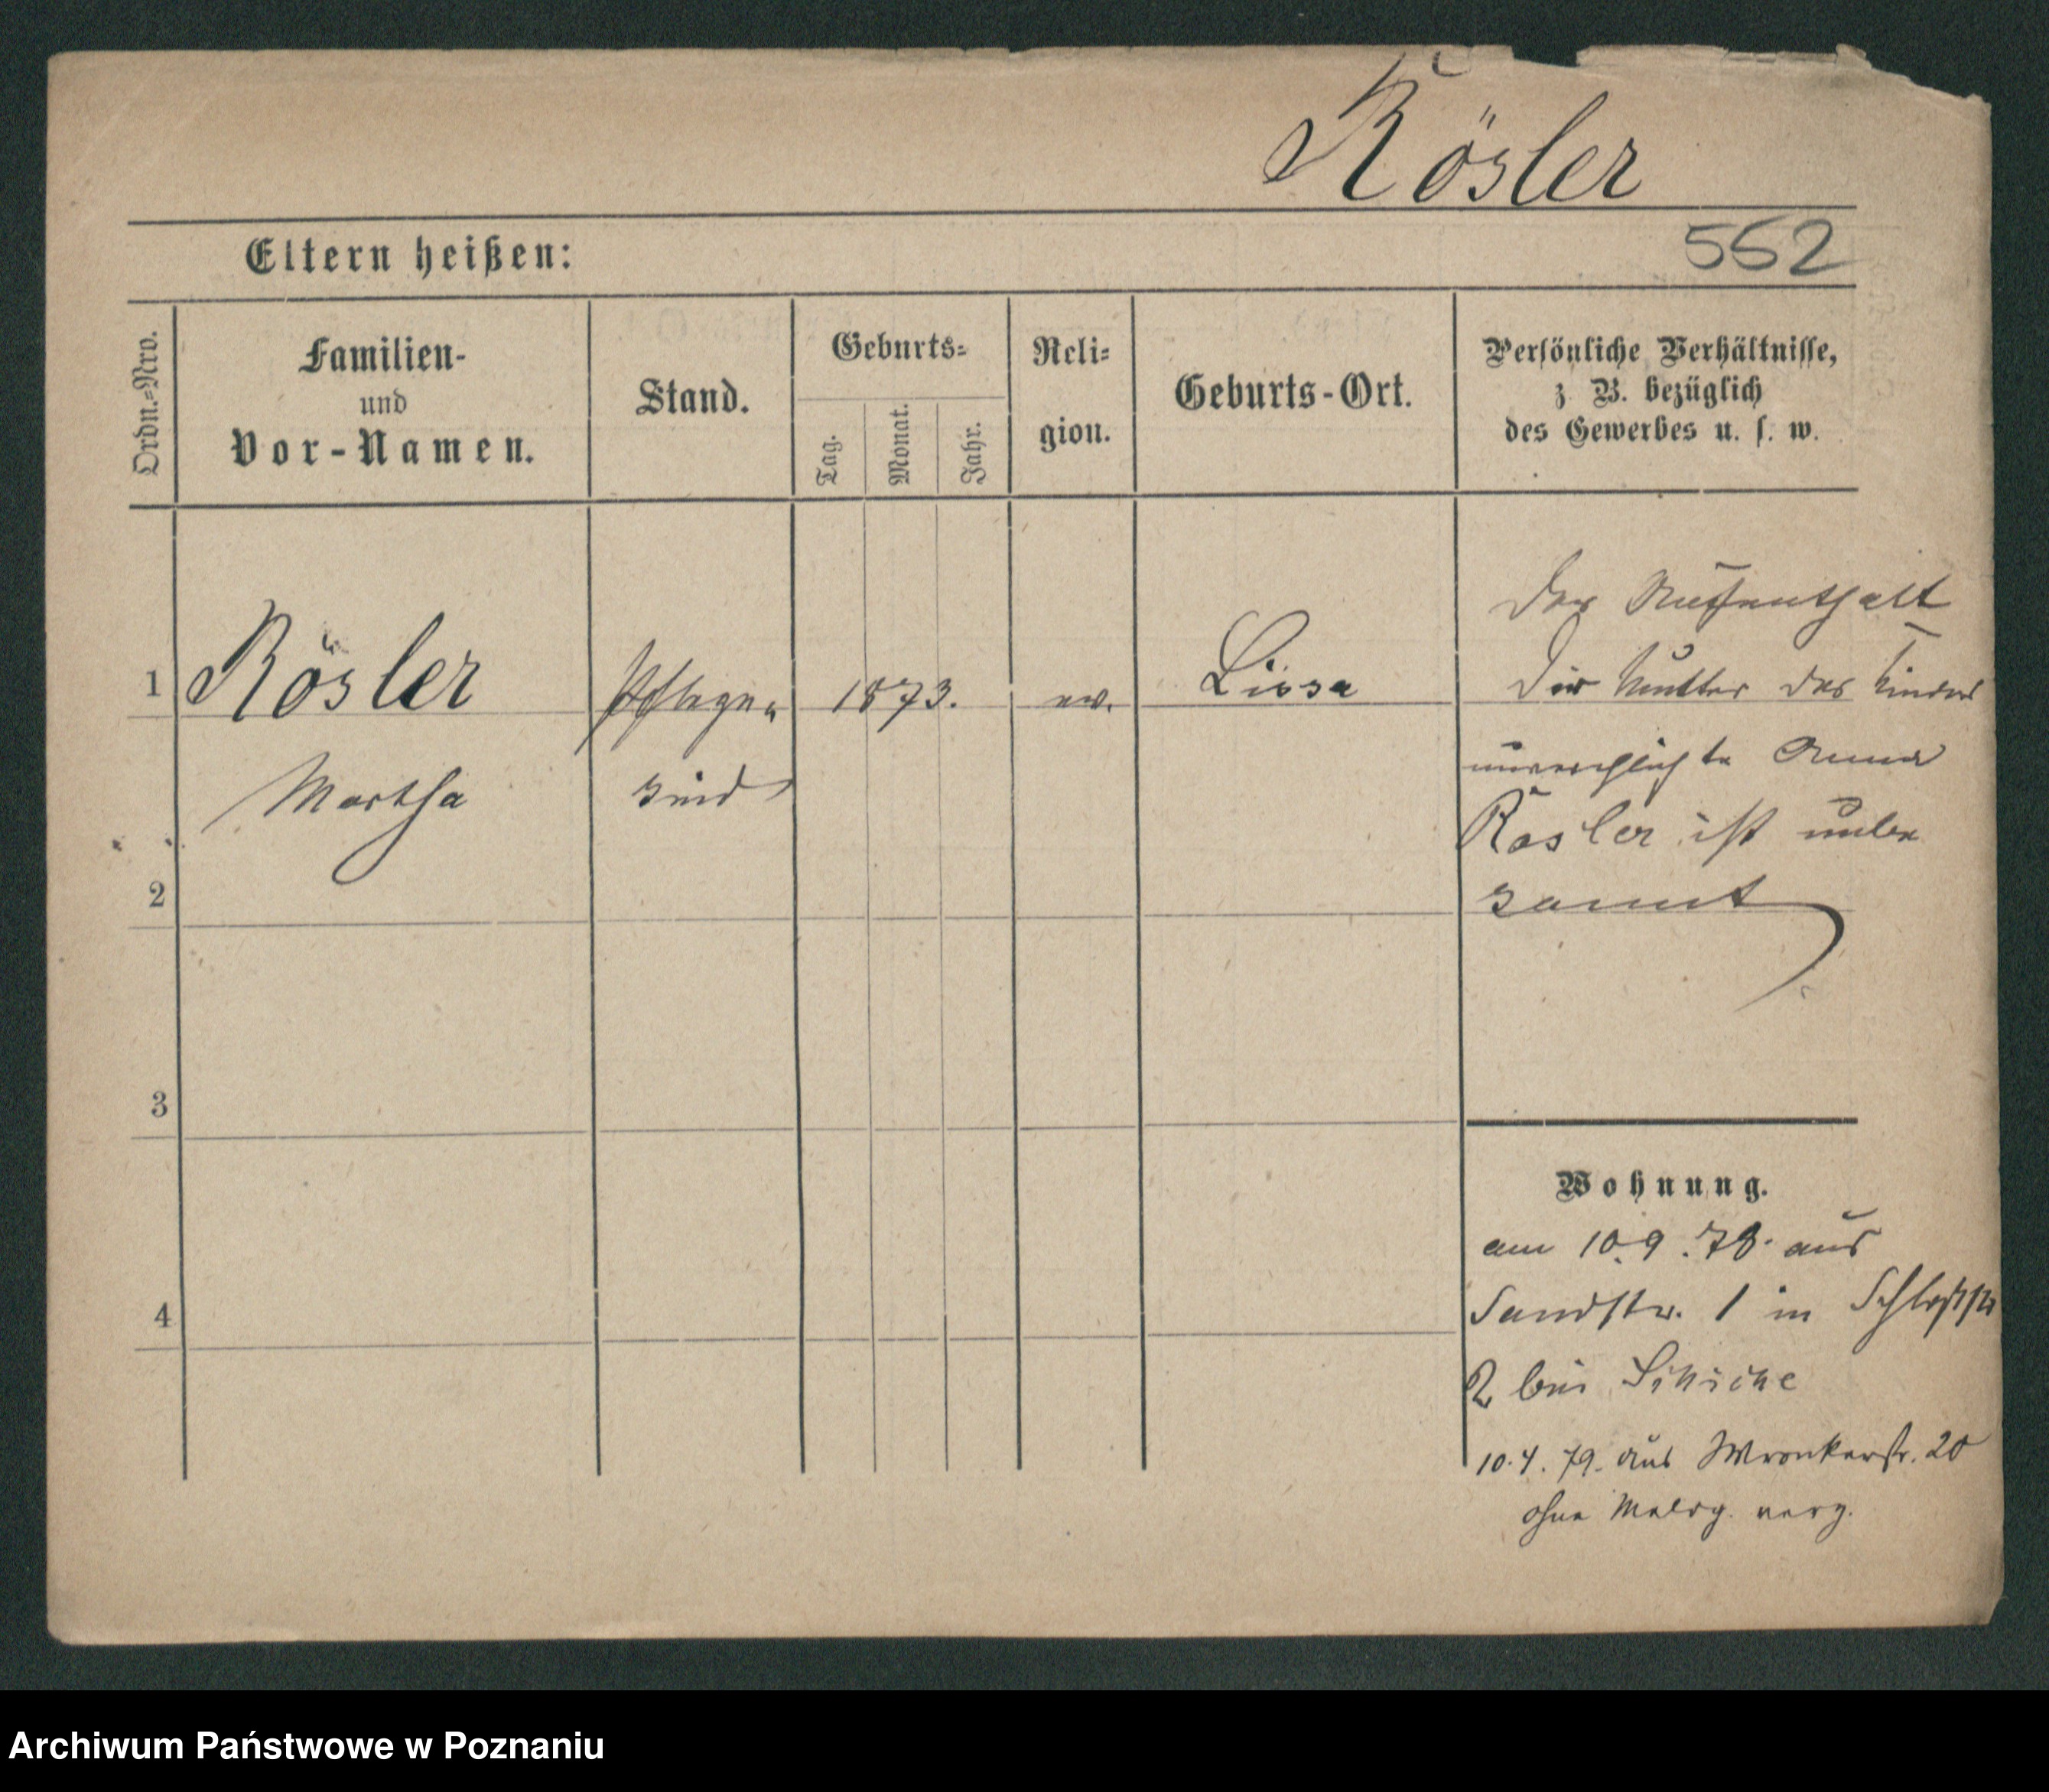 Rösler
552
Eltern heißen:
Ordn.-Nro.
Familien-
und
Vor-Namen.
Stand.
Geburts-
Tag.
Monat.
Jahr.
Reli-
gion.
Geburts-Ort.
Persönliche Verhältnisse,
z. B. bezüglich
des Gewerbes u. s. w.
1
Rösler
Martha
Pflege-
kind
1873.
ev.
Lissa
Der Aufenthalt
der Mutter des Kindes
unverehelichte Anna
Rösler ist unbe
kannt
2
3
4
Wohnung.
am 10.9.78. aus
Sandstr. 1 in Schloßstr
2 bei
10.4.79. aus Wronkerstr. 20
ohne Meldg. verz.
Archiwum Państwowe w Poznaniu